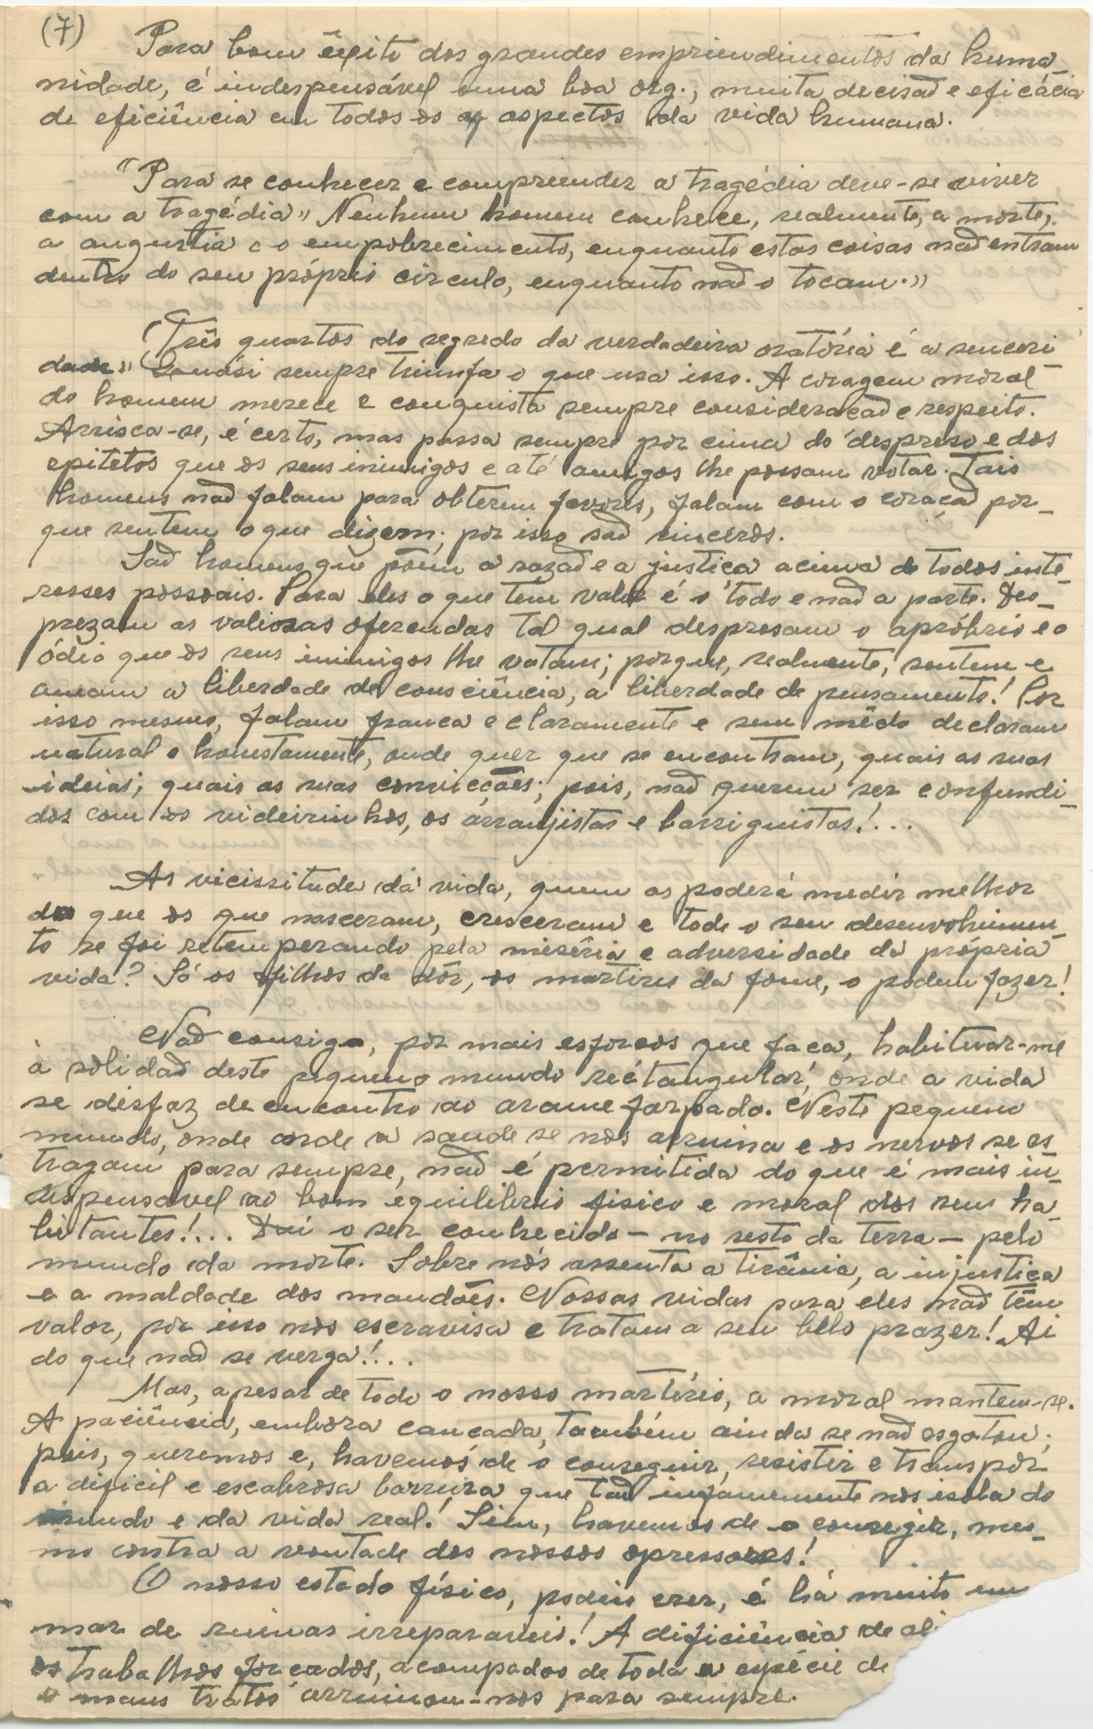 (7) Para bom êxito dos grandes empriendimentos da huma_
nidade, é indespensável uma boa org., muita decisaõ e eficácia
de eficiência em todos os aspectos da vida humana.
"Para se conhecer e compriender a tragédia deve-se viver
com a tragédia" Nenhum homem conhece, realmente, a morte,
a angustia e o empobrecimento, enquanto estas coisas naõ entram
dentro do seu próprio circulo, enquanto naõ o tocam."
(Três quartos do segredo da verdadeira oratória é a senceri_
dade" sempre triunfa o que usa isso. A coragem moral
do homem merece e conquista sempre consideraçaõ e respeito.
Arrisca-se, é certo, mas passa sempre por cima do despreso e dos
epitetos que os seus inimigos e até amigos lhe possam votar. Tais
homens naõ falam para obterem favores, falam com o coraçaõ por_
que sentem o que dizem; por isso saõ sincéros.
Saõ homens que põem a razaõ e a justiça acima de todos inte_
resses possoais. Para eles o que tem valor é o todo e naõ a parte. Des_
prezam as valiozas oferendas tal qual despresam o apróbrio e o
ódio que os seus inimigos lhe votam; porque, realmente, sentem e
amam a liberdade de consciência, a liberdade de pensamento! Por
isso mesmo, falam franca e claramente e sem mêdo declaram
natural e honestamente, onde quer que se encontram, quais as suas
ideias; quais as suas convicções; pois, naõ querem ser confundi_
dos com os videirinhos, os arranjistas e barriguistas!...
As vicissitudes da vida, quem as poderá medir melhor
do que os que nasceram, cresceram e todo o seu desenvolvimen_
to se foi retemperando pela miséria e adversidade da própria
vida? Só os filhos da dôr, os martires da fome, o podem fazer!
Naõ consigo, por mais esforços que faça, habituar-me
à solidaõ deste pequeno mundo réctangular, onde a vida
se disfaz de encontro ao arame farpado. Neste pequeno
mundo, onde a saude se nos arruina e os nervos se es_
tragam para sempre, naõ é permitida do que é mais in_
dispensável ao bom equilibrio fisico e moral dos seus ha_
bitantes!... Daí o ser conhecido — no resto da terra — pelo
mundo da morte. Sobre nós assenta a tirânia, a injustiça
e a maldade dos mandões. Nossas vidas para eles naõ têm
valor, por isso nos escravisa e tratam a seu belo prazer! Ai
do que naõ se verga!...
Mas, apesar de todo o nosso martírio, a moral mantem-se.
A paciência, embora cançada, também ainda se naõ esgotou;
pois, queremos e, havemos de o conseguir, resistir e transpôr
a dificil e escabrosa barreira que taõ infamemente nos isola do
mundo e da vida real! Sim, havemos de o conseguir, mes_
mo contra a vontade dos nossos opressores!
O nosso estado físico, podeis crer, é há muito um
mar de ruinas irreparaveis! A dificiência de
os trabalhos forcados, acompados de toda a espécie de
e maus tratos arruinou-nos para sempre.